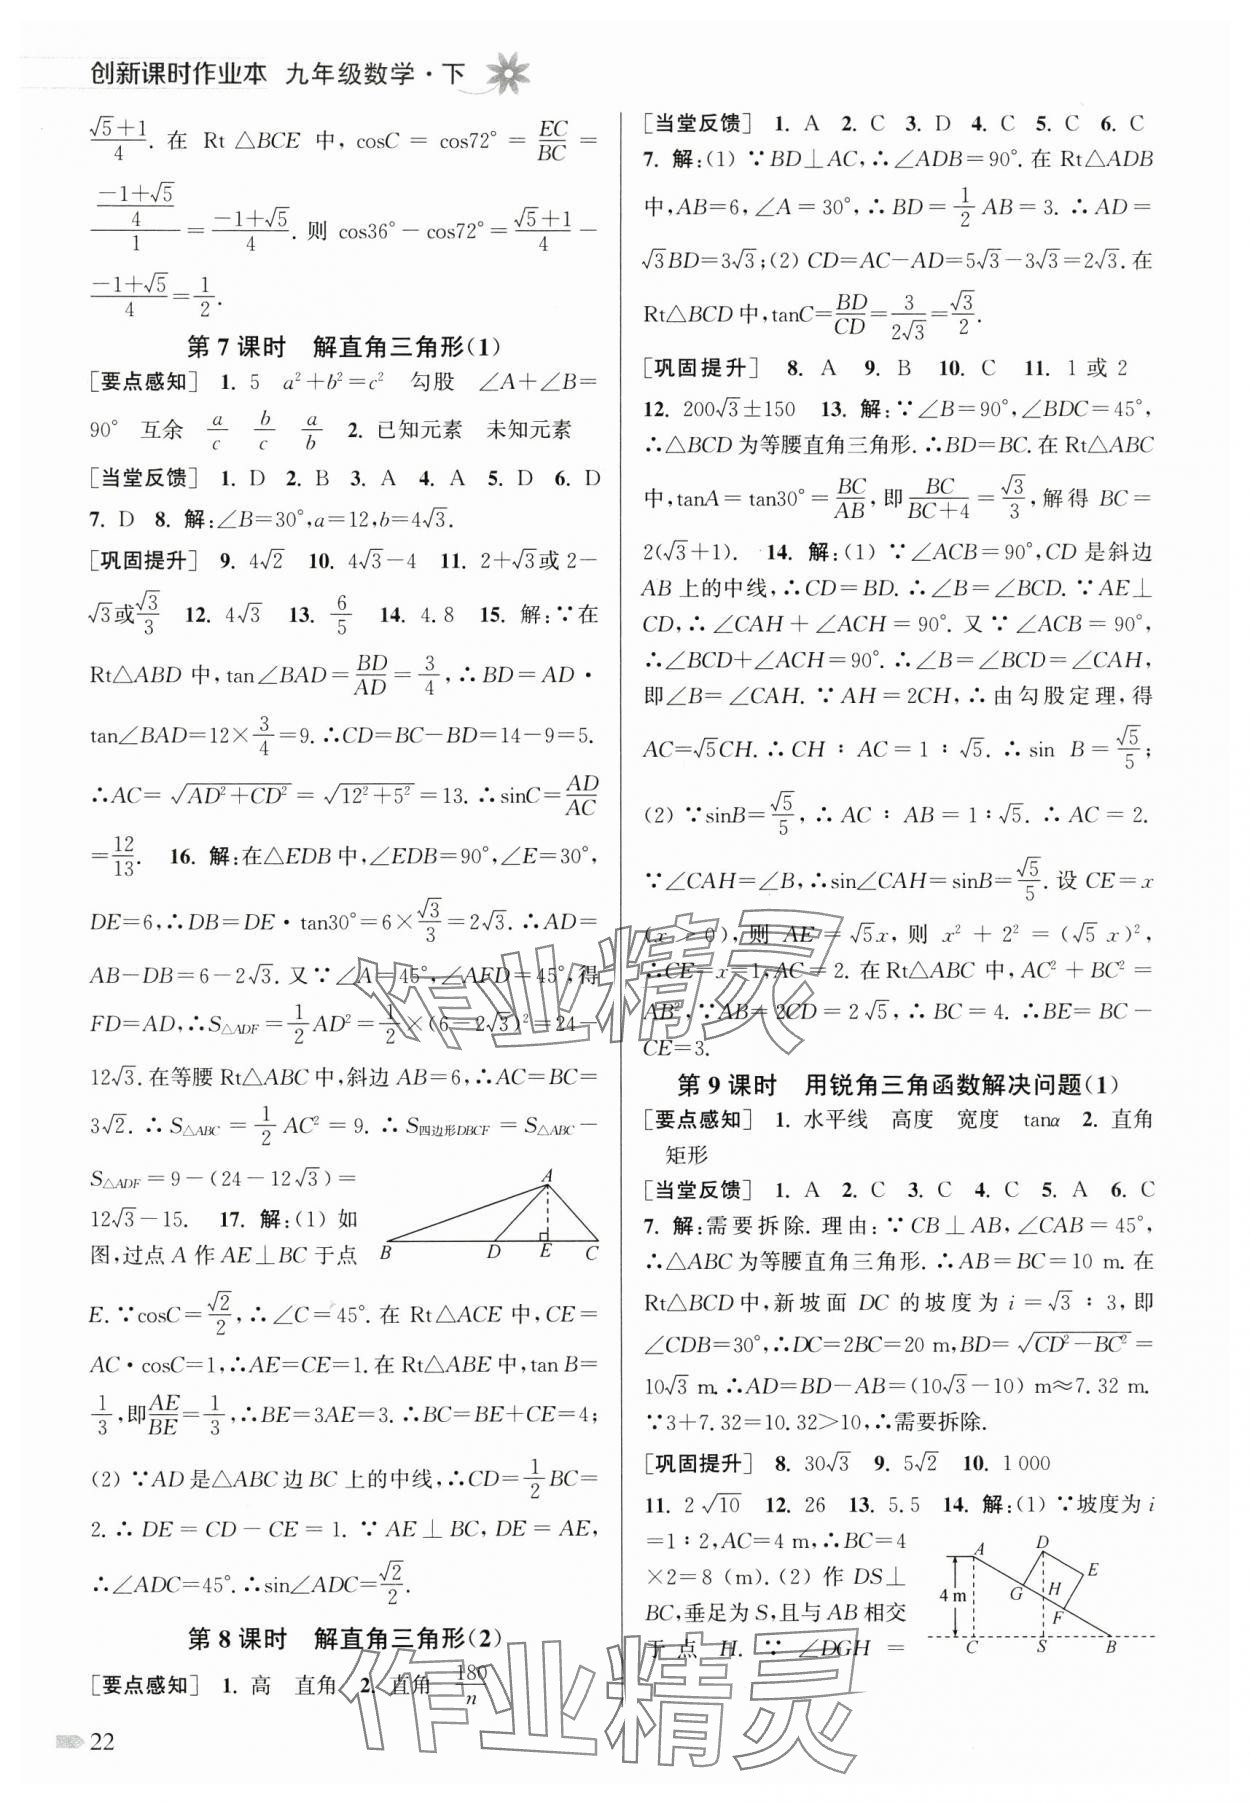 创新课时作业本 九年级数学·下
(√5+1)/4. 在 Rt △BCE 中, cosC = cos72° = EC/BC =
((-1+√5)/4)/1 = (-1+√5)/4. 则 cos36° - cos72° = (√5+1)/4 -
(-1+√5)/4 = 1/2.
第 7 课时 解直角三角形(1)
[要点感知] 1. 5 a²+b²=c² 勾股 ∠A+∠B=
90° 互余 a/c b/c a/b 2. 已知元素 未知元素
[当堂反馈] 1. D 2. B 3. A 4. A 5. D 6. D
7. D 8. 解:∠B=30°,a=12,b=4√3.
[巩固提升] 9. 4√2 10. 4√3-4 11. 2+√3或 2-
√3或√3/3 12. 4√3 13. 6/5 14. 4.8 15. 解:∵在
Rt△ABD 中,tan∠BAD=BD/AD=3/4,∴BD=AD·
tan∠BAD=12×3/4=9.∴CD=BC-BD=14-9=5.
∴AC=√(AD²+CD²)=√(12²+5²)=13.∴sinC=AD/AC
=12/13. 16. 解:在△EDB 中,∠EDB=90°,∠E=30°,
DE=6,∴DB=DE·tan30°=6×√3/3=2√3.∴AD=
AB-DB=6-2√3.又∵∠A=45°,∠AFD=45°,得
FD=AD,∴S△ADF=1/2 AD²=1/2×(6-2√3)²=24-
12√3.在等腰 Rt△ABC 中,斜边 AB=6,∴AC=BC=
3√2.∴S△ABC=1/2 AC²=9.∴S四边形DBCF=S△ABC-
S△ADF=9-(24-12√3)=
12√3-15. 17. 解:(1) 如
图,过点 A 作 AE⊥BC 于点
A
B D E C
E.∵cosC=√2/2,∴∠C=45°.在 Rt△ACE 中,CE=
AC·cosC=1,∴AE=CE=1.在 Rt△ABE 中,tan B=
1/3,即AE/BE=1/3,∴BE=3AE=3.∴BC=BE+CE=4;
(2) ∵AD 是△ABC 边 BC 上的中线,∴CD=1/2 BC=
2.∴DE=CD-CE=1.∵AE⊥BC,DE=AE,
∴∠ADC=45°.∴sin∠ADC=√2/2.
第 8 课时 解直角三角形(2)
[要点感知] 1. 高 直角 2. 直角 180/n
22
[当堂反馈] 1. A 2. C 3. D 4. C 5. C 6. C
7. 解:(1) ∵BD⊥AC,∴∠ADB=90°.在 Rt△ADB
中,AB=6,∠A=30°,∴BD=1/2 AB=3.∴AD=
√3BD=3√3;(2) CD=AC-AD=5√3-3√3=2√3.在
Rt△BCD 中,tanC=BD/CD=3/(2√3)=√3/2.
[巩固提升] 8. A 9. B 10. C 11. 1 或 2
12. 200√3±150 13. 解:∵∠B=90°,∠BDC=45°,
∴△BCD 为等腰直角三角形.∴BD=BC.在 Rt△ABC
中,tanA=tan30°=BC/AB,即BC/(BC+4)=√3/3,解得 BC=
2(√3+1). 14. 解:(1) ∵∠ACB=90°,CD 是斜边
AB 上的中线,∴CD=BD.∴∠B=∠BCD.∵AE⊥
CD,∴∠CAH+∠ACH=90°.又∵∠ACB=90°,
∴∠BCD+∠ACH=90°.∴∠B=∠BCD=∠CAH,
即∠B=∠CAH.∵AH=2CH,∴由勾股定理,得
AC=√5CH.∴CH∶AC=1∶√5.∴sin B=√5/5;
(2) ∵sinB=√5/5,∴AC∶AB=1∶√5.∴AC=2.
∵∠CAH=∠B,∴sin∠CAH=sinB=√5/5.设 CE=x
(x>0),则 AE=√5x,则 x²+2²=(√5x)²,
∴CE=x=1,AC=2.在 Rt△ABC 中,AC²+BC²=
AB²,∵AB=2CD=2√5,∴BC=4.∴BE=BC-
CE=3.
第 9 课时 用锐角三角函数解决问题(1)
[要点感知] 1. 水平线 高度 宽度 tanα 2. 直角
矩形
[当堂反馈] 1. A 2. C 3. C 4. C 5. A 6. C
7. 解:需要拆除.理由:∵CB⊥AB,∠CAB=45°,
∴△ABC 为等腰直角三角形.∴AB=BC=10 m.在
Rt△BCD 中,新坡面 DC 的坡度为 i=√3∶3,即
∠CDB=30°,∴DC=2BC=20 m,BD=√(CD²-BC²)=
10√3 m.∴AD=BD-AB=(10√3-10) m≈7.32 m.
∵3+7.32=10.32>10,∴需要拆除.
[巩固提升] 8. 30√3 9. 5√2 10. 1 000
11. 2√10 12. 26 13. 5.5 14. 解:(1) ∵坡度为 i
=1∶2,AC=4 m,∴BC=4
×2=8 (m).(2) 作 DS⊥
BC,垂足为 S,且与 AB 相交
于点 H.∵∠DGH=
A D E
4 m G H F
C S B
作业精灵
作业精灵